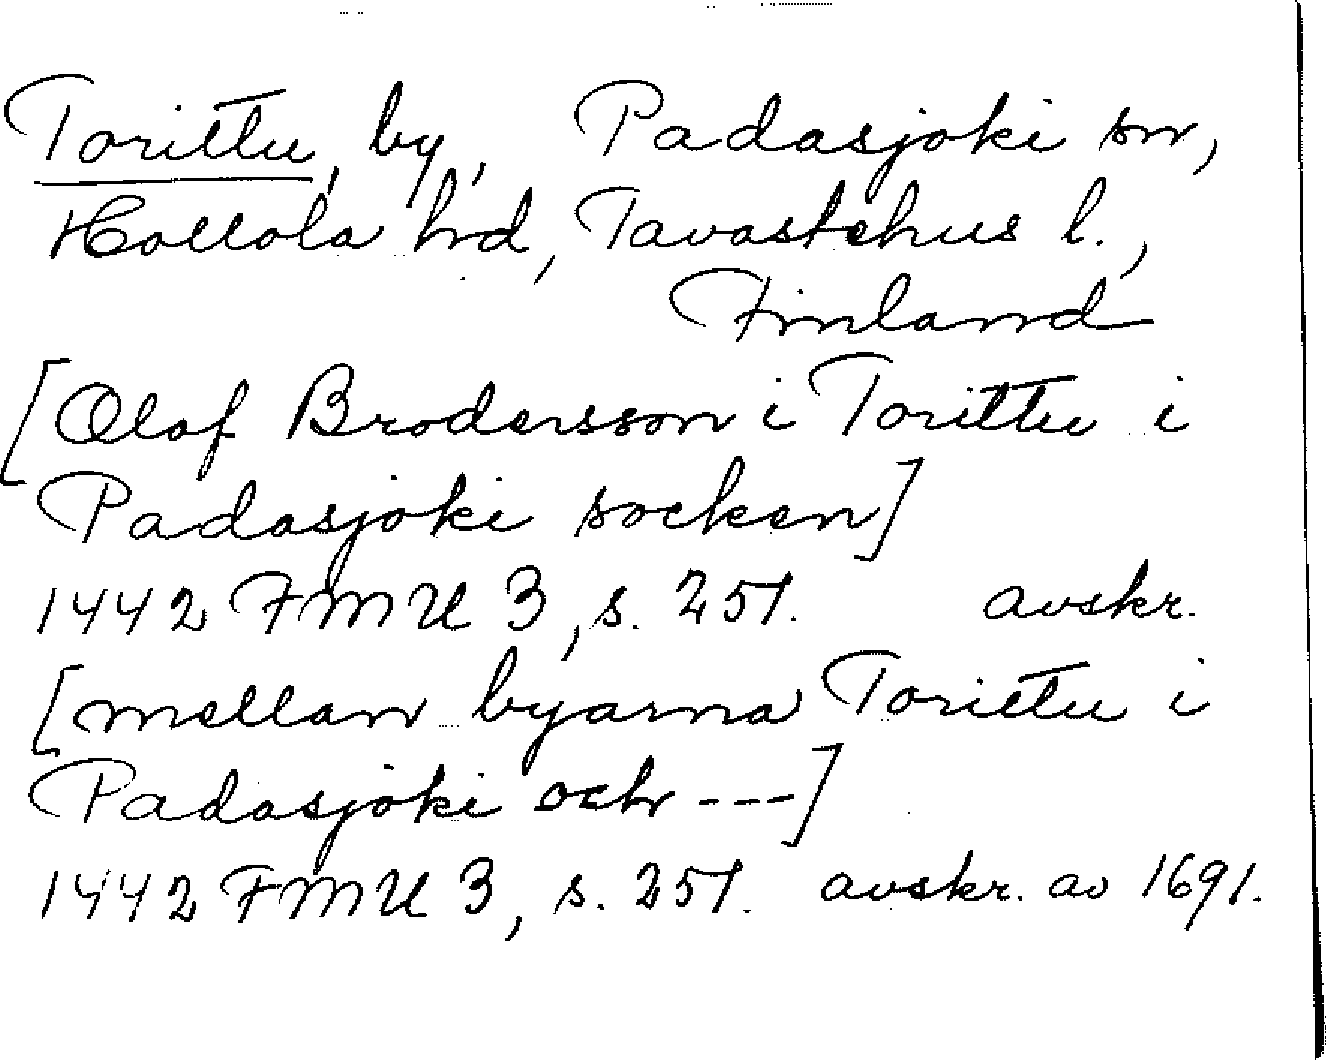 Torittu, by, Padasjoki sn,
Hollola hd, Tavastehus l.,
Finland
[Olof Brodersson i Torittu i
Padasjoki socken]
1442 FMU 3, s. 251. avskr.
[mellan byarna Torittu i
Padasjoki och ---]
1442 FMU 3, s. 251. avskr. av 1691.